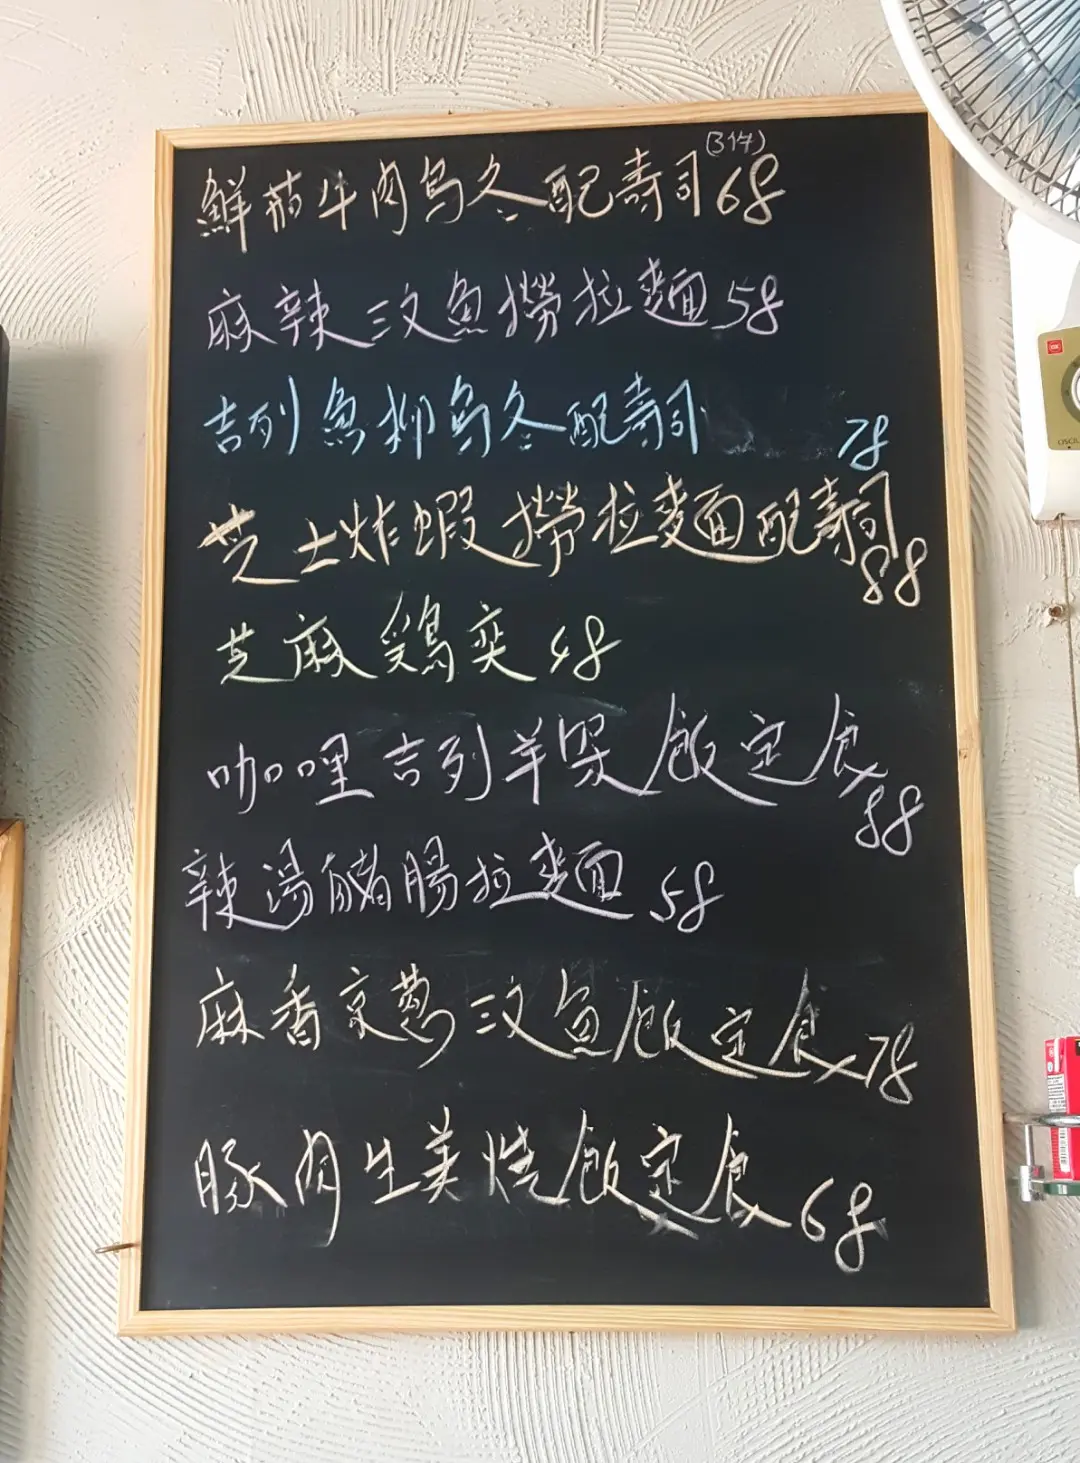 鮮茄牛肉烏冬配壽司(3件)68
麻辣三文魚撈拉麵58
吉列魚柳烏冬配壽司 78
芝士炸蝦撈拉麵配壽司88
芝麻鷄奕48
咖哩吉列羊架飯定食88
辣湯豬腸拉麵58
麻香京蔥三文魚飯定食78
豚肉生姜燒飯定食68